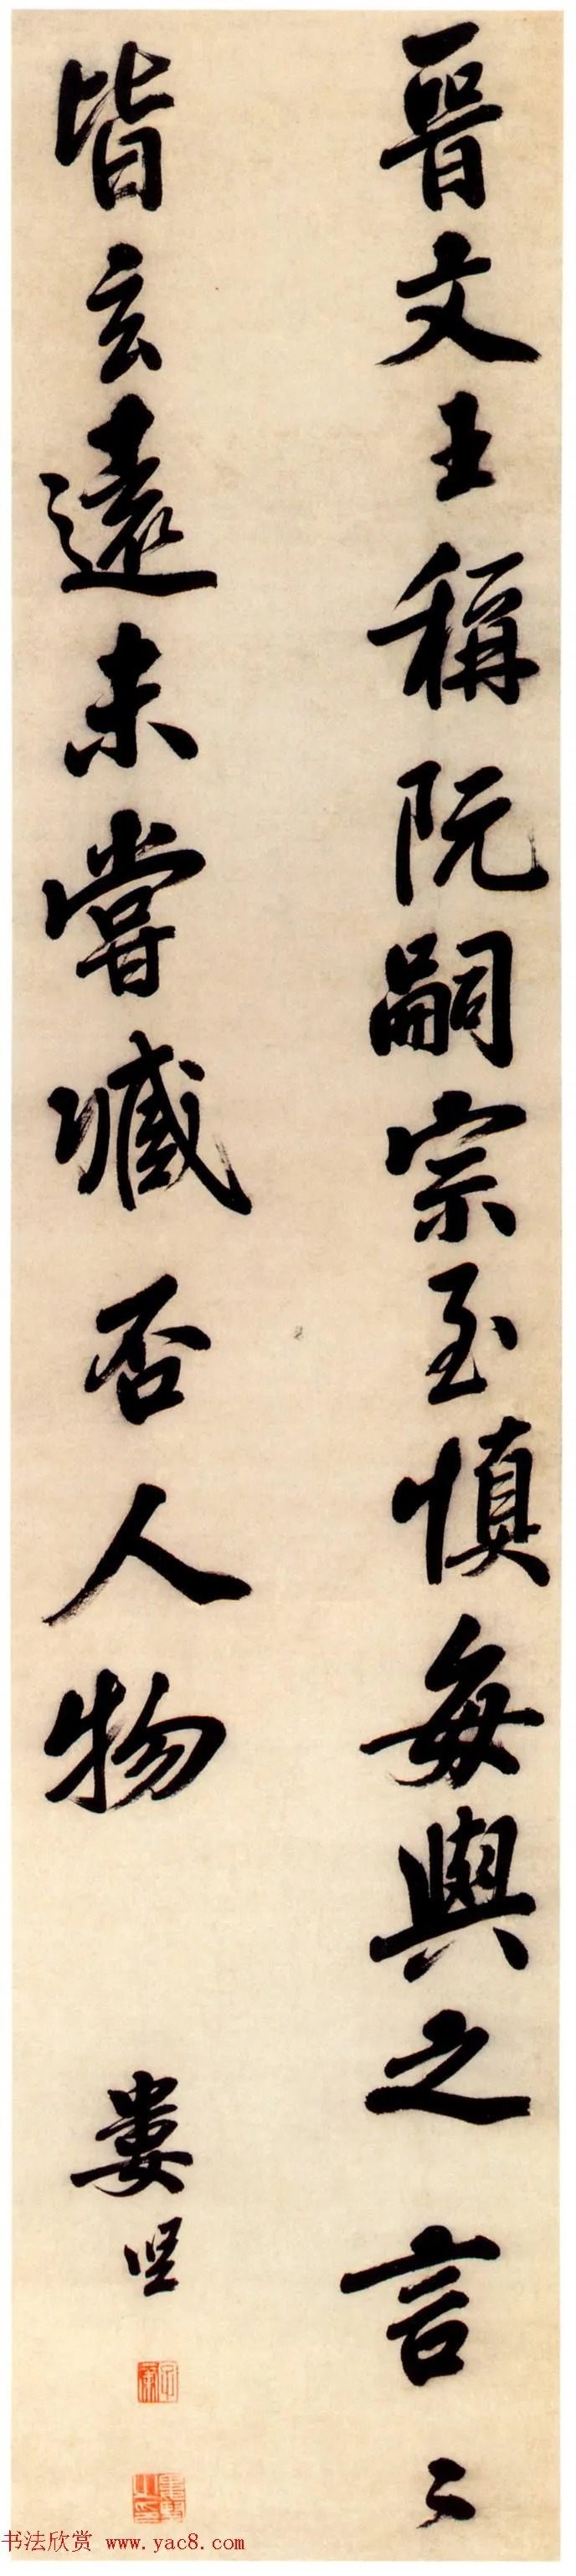 晉文王稱阮嗣宗至慎每與之言〻
皆玄遠未嘗臧否人物
婁坚
书法欣赏 www.yac8.com